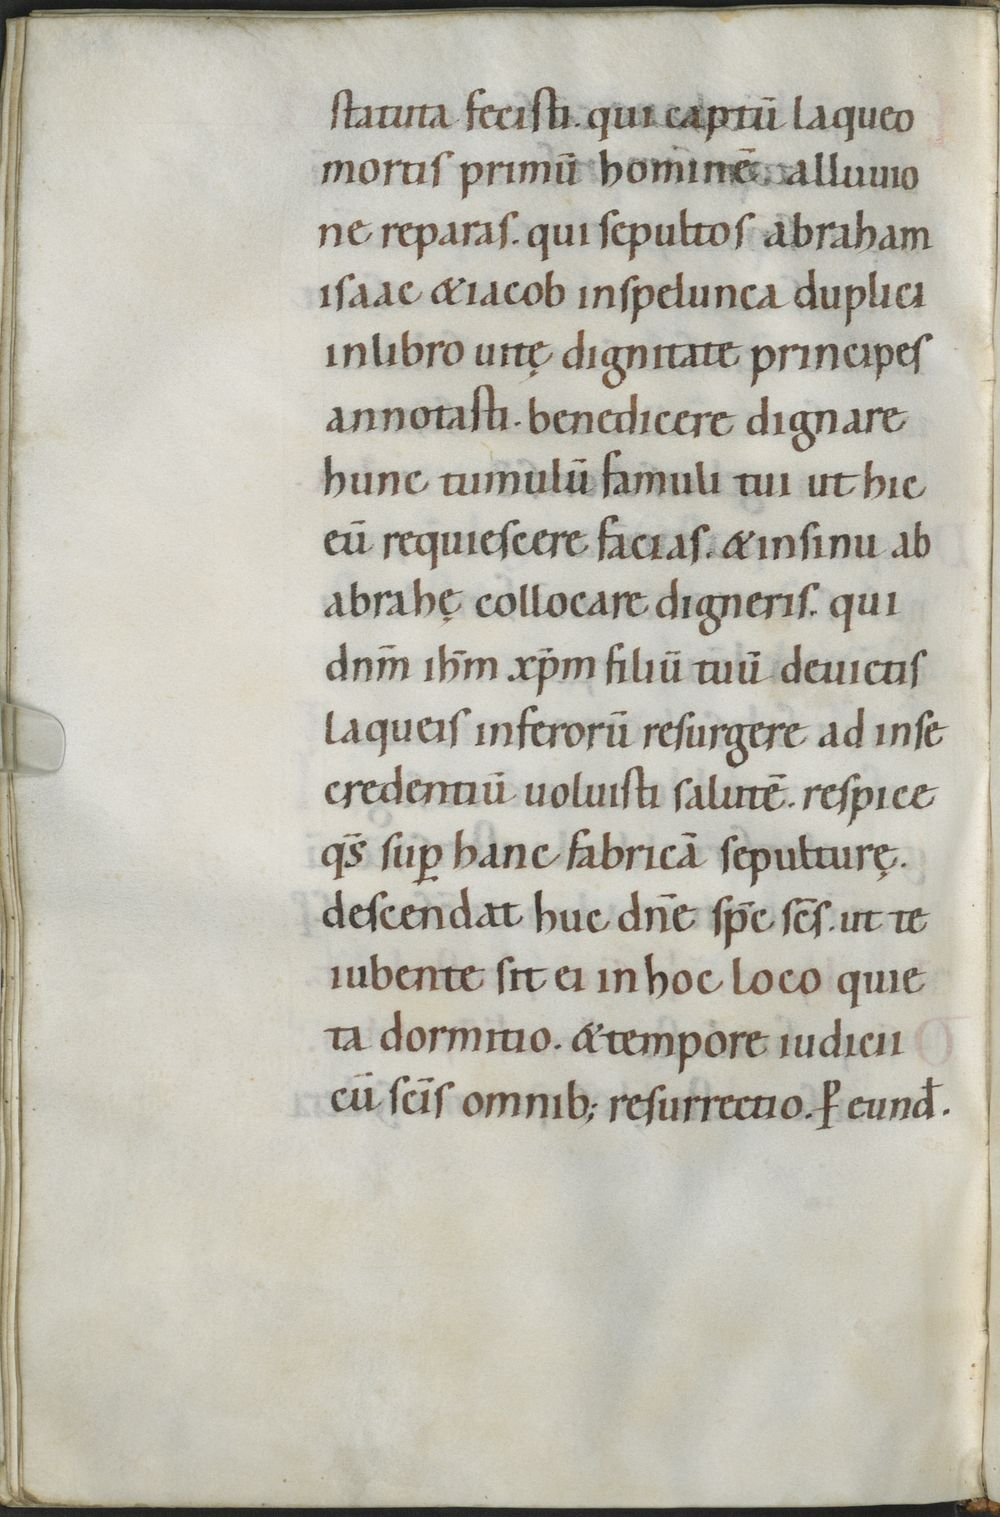 statuta fecisti. qui captū laqueo
mortis primū hominē. alluuio
ne reparas. qui sepultos abraham
isaac & iacob in spelunca duplici
in libro uitę dignitate principes
annotasti. benedicere dignare
hunc tumulū famuli tui ut hic
eū requiescere facias. & in sinu ab
abrahę collocare digneris. qui
dn̄m ih̄m xp̄m filiū tuū deuictis
laqueis inferorū resurgere ad in se
credentiū uoluisti salutē. respice
qs̄ suꝑ hanc fabricā sepulturę.
descendat huc dn̄e sp̄c sc̄s. ut te
iubente sit ei in hoc loco quie
ta dormitio. & tempore iudicii
cū sc̄is omnib; resurrectio. ꝑ eund̄.